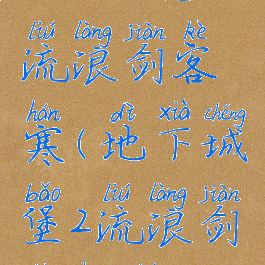 liú làng jiàn kè
流浪剑客
hán dì xià chéng
寒(地下城
bǎo liú làng jiàn
堡2流浪剑